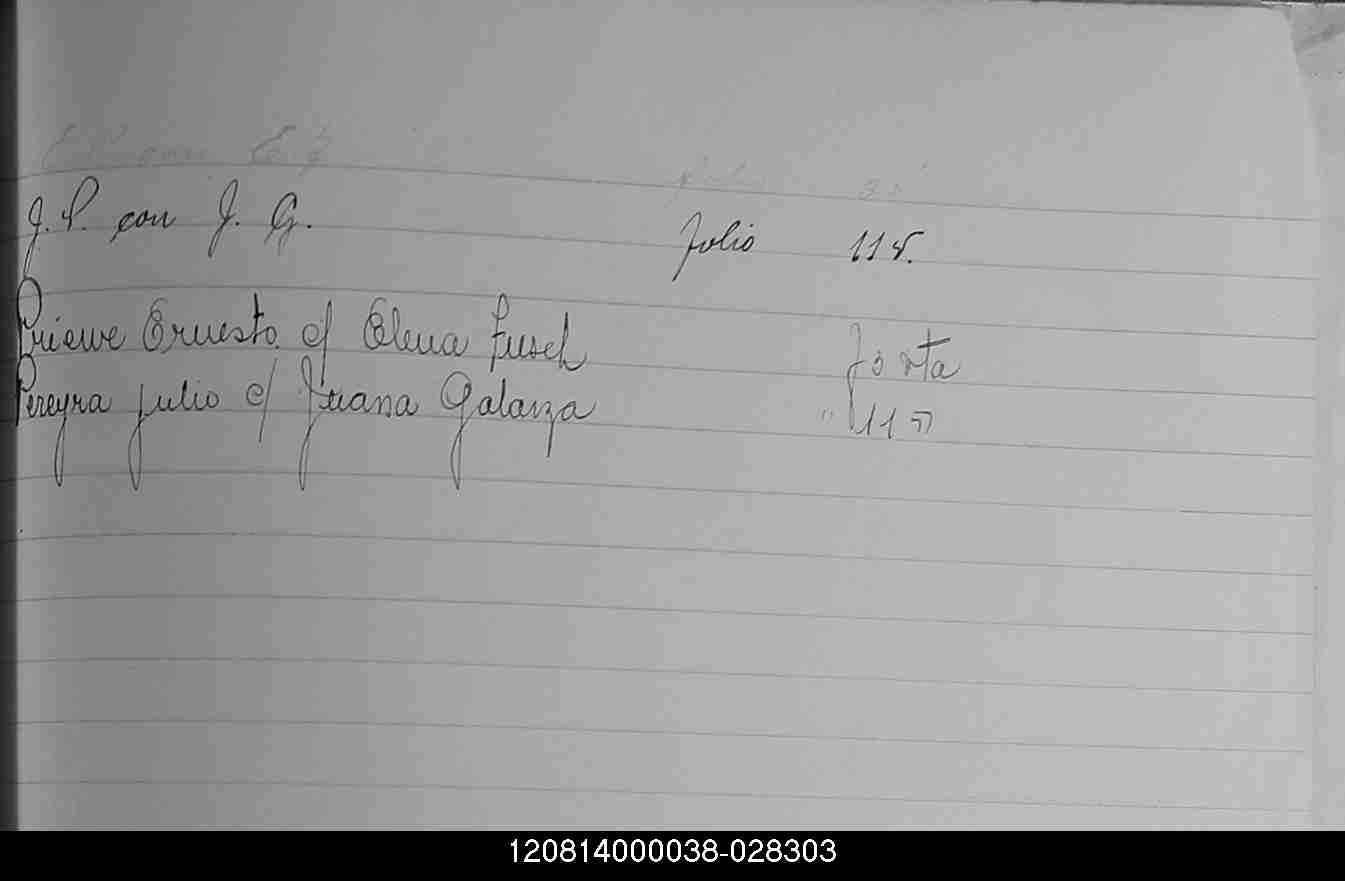 J. P. con J. G. folio 115.
Priewe Ernesto c/ Elena Fusch
Pereyra Julio c/ Juana Galarza " 115
120814000038-028303